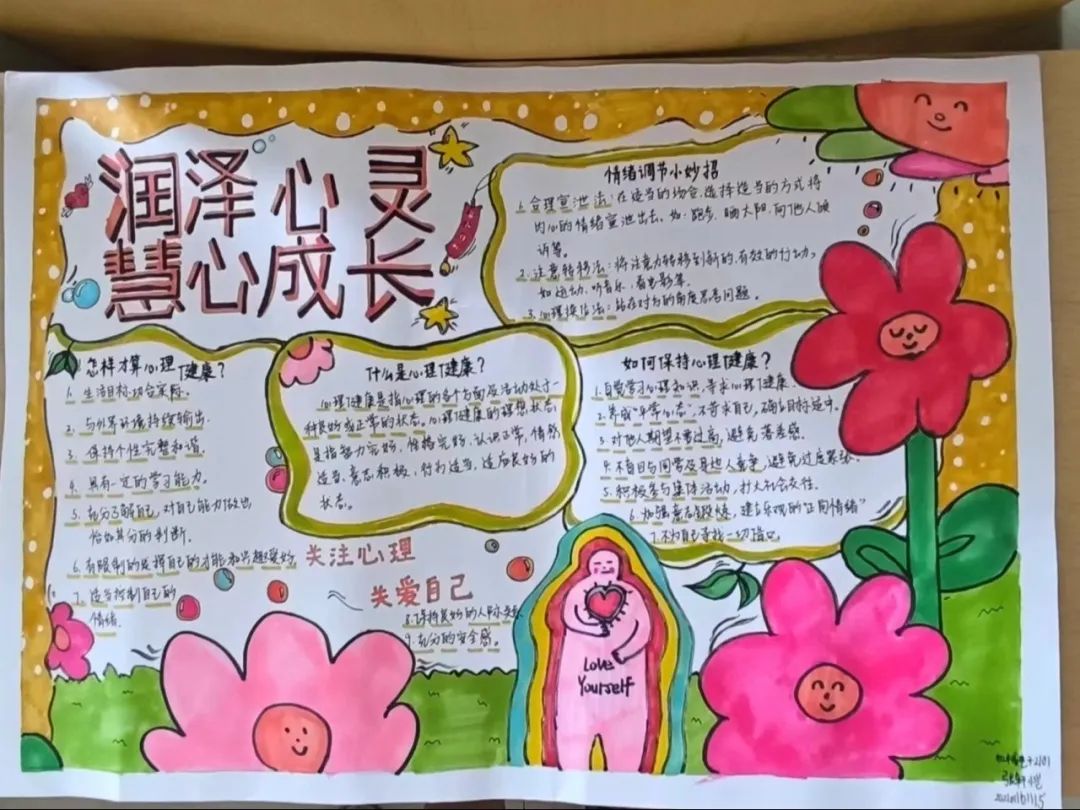 润泽心灵
慧心成长
情绪调节小妙招
1.合理宣泄法:在适当的场合,选择适当的方式将
内心的情绪宣泄出去。如:跑步,晒太阳,向他人倾
诉等。
2.注意转移法:将注意力转移到新的,有效的行动。
如运动、听音乐、看电影等。
3.心理换位法:站在对方的角度思考问题。
怎样才算心理健康?
1.生活目标切合实际。
2.与外界环境持续输出
3.保持个性完整和谐。
4.具有一定的学习能力。
5.充分了解自己,对自己能力做出
恰如其分的判断。
6.有限制的发挥自己的才能和兴趣爱好
7.适当控制自己的
情绪。
8.保持良好的人际关系
9.充分的安全感。
什么是心理健康?
心理健康是指心理的各个方面及活动处于一
种良好或正常的状态。心理健康的理想状态
是指智力完好、性格完好、认识正常、情感
适当、意志积极、行为适当、适应良好的
状态。
如何保持心理健康?
1.自觉学习心理知识,寻求心理健康.
2.养成"平常心态",不苛求自己,确立目标适中。
3.对他人期望不要过高,避免落差感。
4.不盲目与同学及其他人竞争,避免过度紧张。
5.积极参与集体活动,扩大社会交往。
6.加强意志锻炼,建立乐观的"正向情绪"
7.不为自己寻找一切借口
关注心理
关爱自己
Love
Yourself
2101